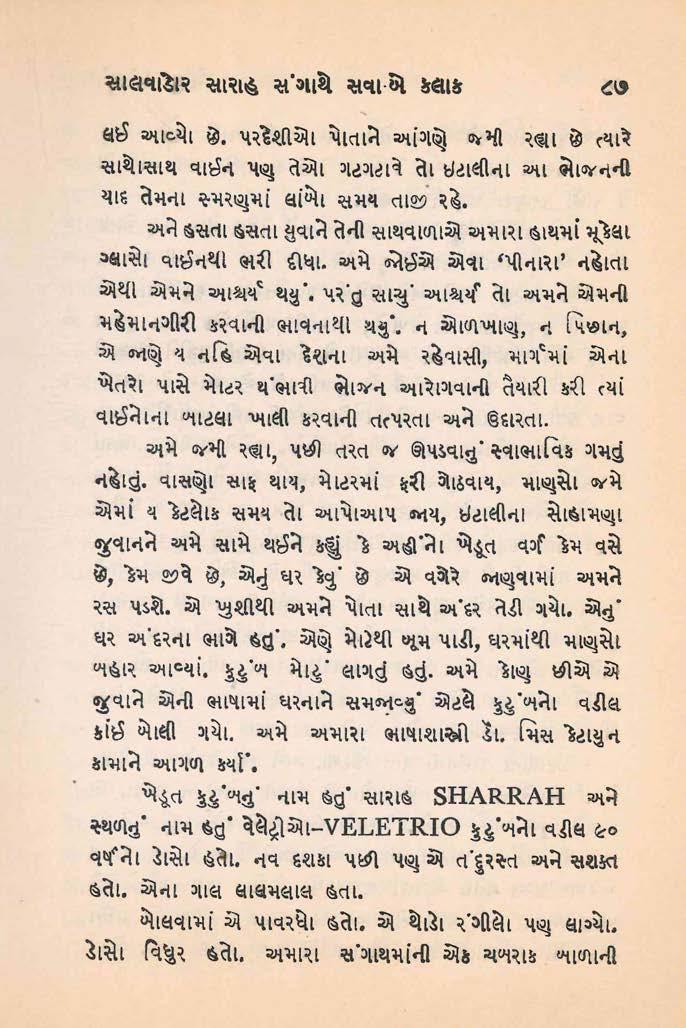 સાલવાડોર સારાહ સંગાથે સવા બે કલાક ૮૭
લઈ આવ્યો છે. પરદેશીઓ પોતાને આંગણે જમી રહ્યા છે ત્યારે
સાથોસાથ વાઈન પણ તેઓ ગટગટાવે તો ઇટાલીના આ ભોજનની
યાદ તેમના સ્મરણમાં લાંબો સમય તાજી રહે.
અને હસતા હસતા યુવાને તેની સાથવાળાએ અમારા હાથમાં મૂકેલા
ગ્લાસો વાઈનથી ભરી દીધા. અમે જોઈએ એવા ‘પીનારા’ નહોતા
એથી એમને આશ્ચર્ય થયું. પરંતુ સાચું આશ્ચર્ય તો અમને એમની
મહેમાનગીરી કરવાની ભાવનાથી થયું. ન ઓળખાણ, ન પિછાન,
એ જાણે ય નહિ એવા દેશના અમે રહેવાસી, માર્ગમાં એના
ખેતરો પાસે મોટર થંભાવી ભોજન આરોગવાની તૈયારી કરી ત્યાં
વાઈનોના બાટલા ખાલી કરવાની તત્પરતા અને ઉદારતા.
અમે જમી રહ્યા, પછી તરત જ ઊપડવાનું સ્વાભાવિક ગમતું
નહોતું. વાસણો સાફ થાય, મોટરમાં ફરી ગોઠવાય, માણસો જમે
એમાં ય કેટલોક સમય તો આપોઆપ જાય, ઇટાલીના સોહામણા
જુવાનને અમે સામે થઈને કહ્યું કે અહીંનો ખેડૂત વર્ગ કેમ વસે
છે, કેમ જીવે છે, એનું ઘર કેવું છે એ વગેરે જાણવામાં અમને
રસ પડશે. એ ખુશીથી અમને પોતા સાથે અંદર તેડી ગયો. એનું
ઘર અંદરના ભાગે હતું. એણે મોટેથી બૂમ પાડી, ઘરમાંથી માણસો
બહાર આવ્યાં. કુટુંબ મોટું લાગતું હતું. અમે કોણ છીએ એ
જુવાને એની ભાષામાં ઘરનાને સમજાવ્યું એટલે કુટુંબનો વડીલ
કાંઈ બોલી ગયો. અમે અમારા ભાષાશાસ્ત્રી ડૉ. મિસ કેટાયુન
કામાને આગળ કર્યાં.
ખેડૂત કુટુંબનું નામ હતું સારાહ SHARRAH અને
સ્થળનું નામ હતું વેલેટ્રીઓ–VELETRIO કુટુંબનો વડીલ ૯૦
વર્ષનો ડોસો હતો. નવ દશકા પછી પણ એ તંદુરસ્ત અને સશક્ત
હતો. એના ગાલ લાલમલાલ હતા.
બોલવામાં એ પાવરધો હતો. એ થોડો રંગીલો પણ લાગ્યો.
ડોસો વિધુર હતો. અમારા સંગાથમાંની એક ચબરાક બાળાની